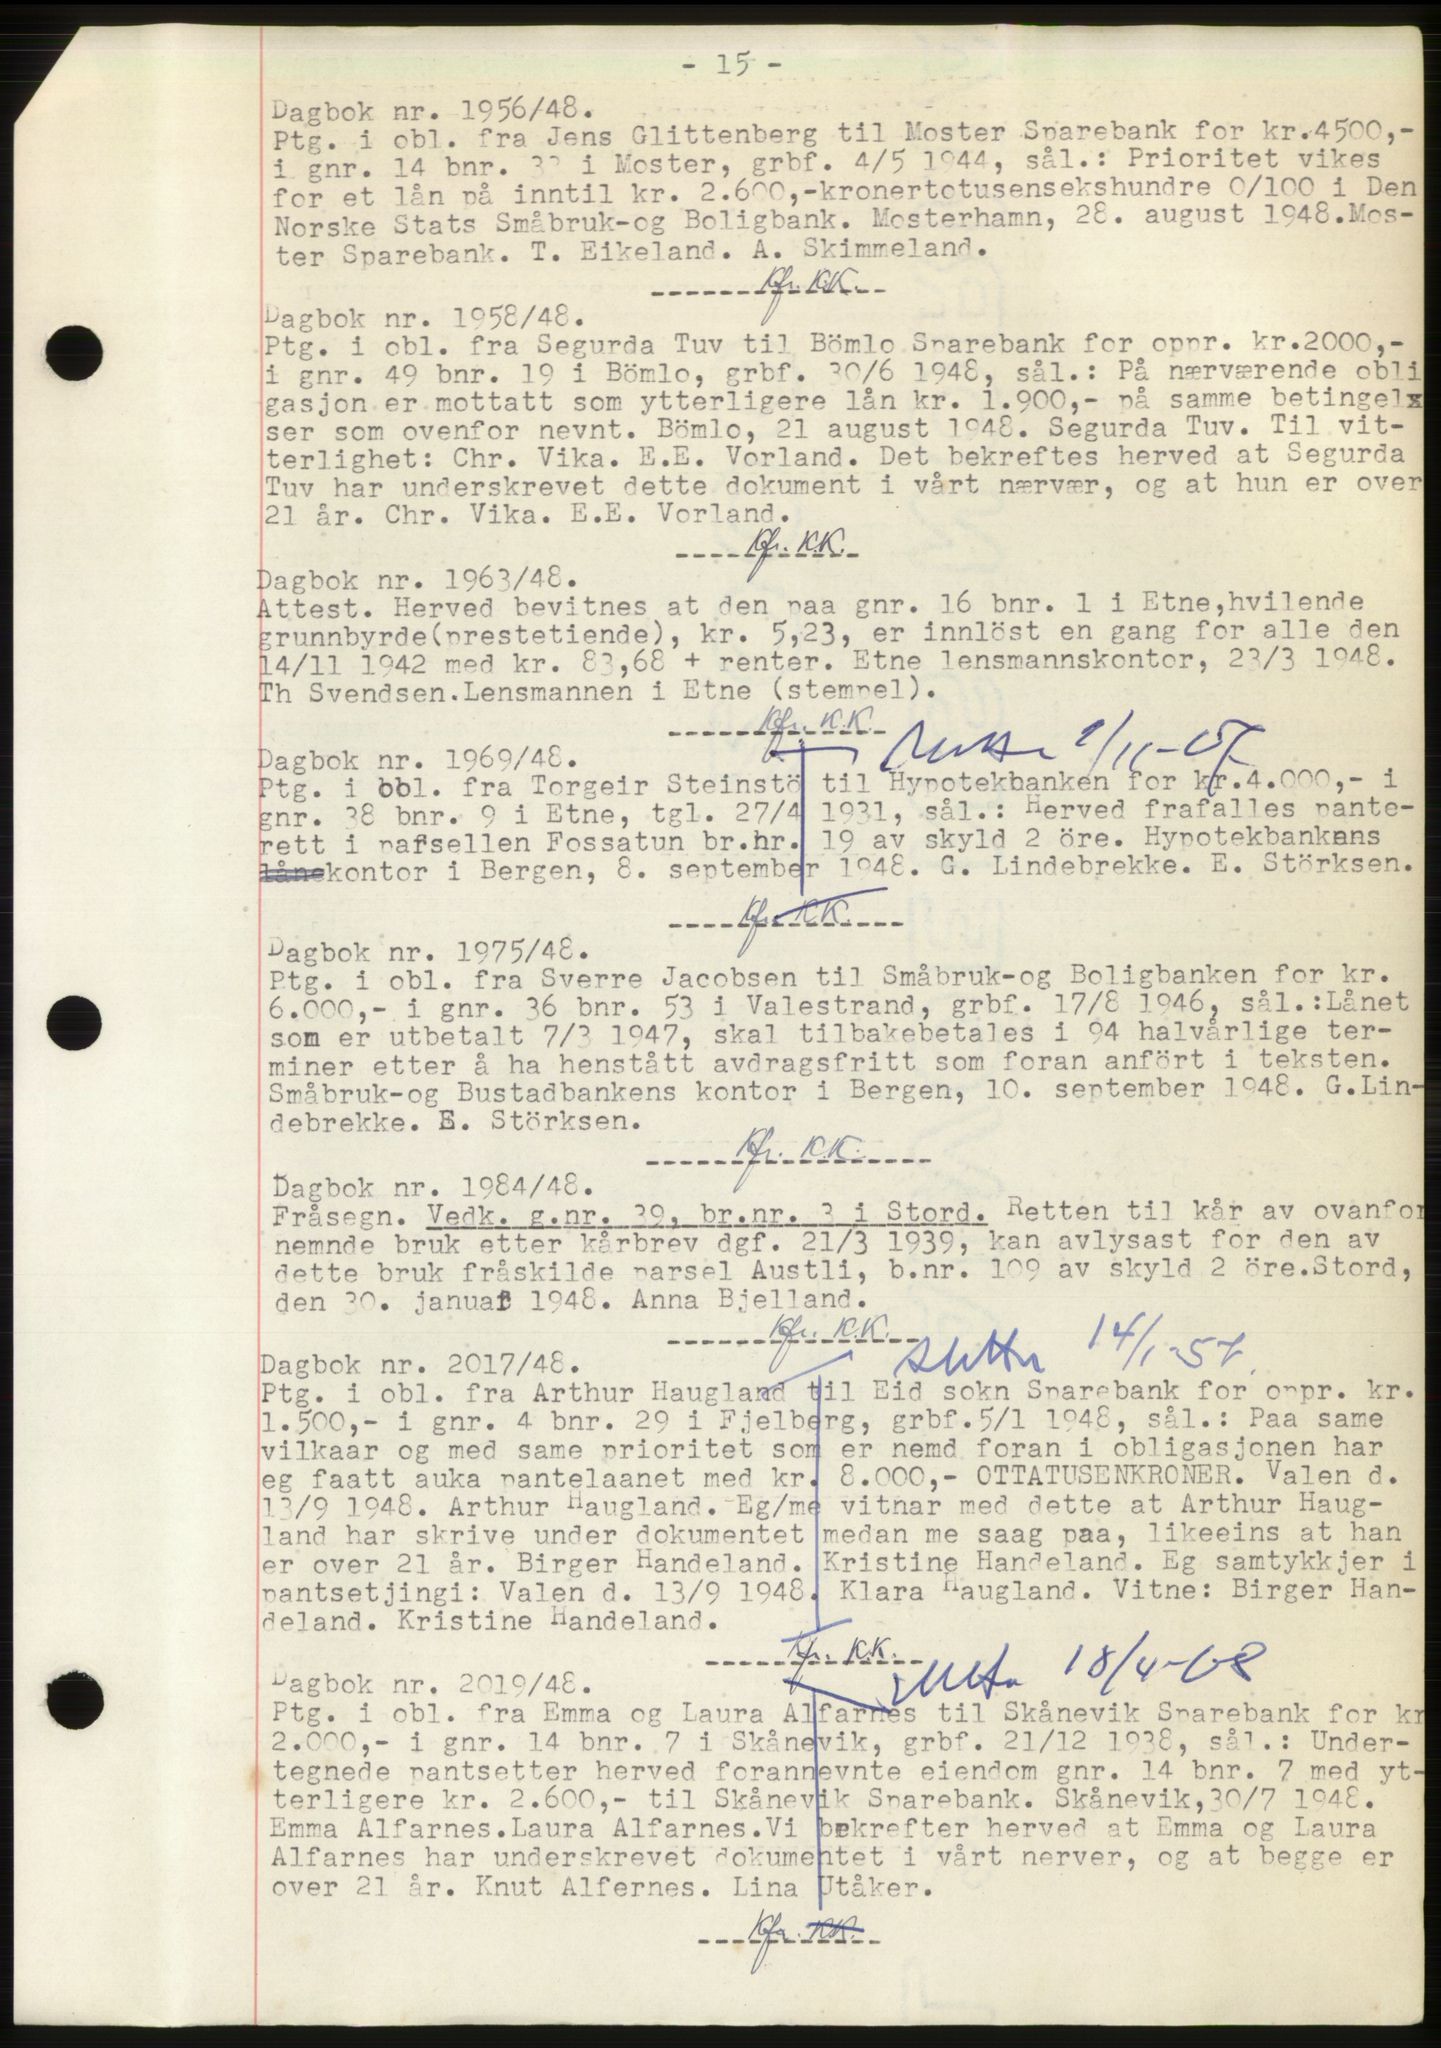 - 15 -
Dagbok nr. 1956/48.
Ptg. i obl. fra Jens Glittenberg til Moster Sparebank for kr.4500,-
i gnr. 14 bnr. i Moster, grbf. 4/5 1944, sål.: Prioritet vikes
for et lån på inntil kr. 2.600,-kronertotusensekshundre 0/100 i Den
Norske Stats Småbruk-og Boligbank. Mosterhamn, 28. august 1948.Mos-
ter Sparebank. T. Eikeland. A. Skimmeland.
Kfr. K.K.
Dagbok nr. 1958/48.
Ptg. i obl. fra Segurda Tuv til Bömlo Sparebank for oppr. kr.2000,-
i gnr. 49 bnr. 19 i Bömlo, grbf. 30/6 1948, sål.: På nærværende obli
gasjon er mottatt som ytterligere lån kr. 1.900,- på samme betingel
ser som ovenfor nevnt. Bömlo, 21 august 1948. Segurda Tuv. Til vit-
terlighet: Chr. Vika. E.E. Vorland. Det bekreftes herved at Segurda
Tuv har underskrevet dette dokument i vårt nærvær, og at hun er over
21 år. Chr. Vika. E.E. Vorland.
Kfr. K.K.
Dagbok nr. 1963/48.
Attest. Herved bevitnes at den paa gnr. 16 bnr. 1 i Etne,hvilende
grunnbyrde(prestetiende), kr. 5,23, er innlöst en gang for alle den
14/11 1942 med kr. 83,68 + renter. Etne lensmannskontor, 23/3 1948.
Th Svendsen.Lensmannen i Etne (stempel).
Kfr. K.K.
Dagbok nr. 1969/48.
Ptg. i obl. fra Torgeir Steinstö til Hypotekbanken for kr.4.000,- i
gnr. 38 bnr. 9 i Etne, tgl. 27/4 1931, sål.: Herved frafalles pante-
rett i parsellen Fossatun br.nr. 19 av skyld 2 öre. Hypotekbankens
lånekontor i Bergen, 8. september 1948. G. Lindebrekke. E. Störksen.
Kfr. K.K.
Dagbok nr. 1975/48.
Ptg. i obl. fra Sverre Jacobsen til Småbruk-og Boligbanken for kr.
6.000,- i gnr. 36 bnr. 53 i Valestrand, grbf. 17/8 1946, sål.:Lånet
som er utbetalt 7/3 1947, skal tilbakebetales i 94 halvårlige ter-
miner etter å ha henstått avdragsfritt som foran anfört i teksten.
Småbruk-og Bustadbankens kontor i Bergen, 10. september 1948. G.Lin-
debrekke. E. Störksen.
Kfr. K.K.
Dagbok nr. 1984/48.
Fråsegn. Vedk. g.nr. 39, br.nr. 3 i Stord. Retten til kår av ovanfor
nemnde bruk etter kårbrev dgf. 21/3 1939, kan avlysast for den av
dette bruk fråskilde parsel Austli, b.nr. 109 av skyld 2 öre.Stord,
den 30. januar 1948. Anna Bjelland.
Kfr. K.K.
slettes 14/1-57.
Dagbok nr. 2017/48.
Ptg. i obl. fra Arthur Haugland til Eid sokn Sparebank for oppr. kr.
1.500,- i gnr. 4 bnr. 29 i Fjelberg, grbf.5/1 1948, sål.: Paa same
vilkaar og med same prioritet som er nemd foran i obligasjonen har
eg faatt auka pantelaanet med kr. 8.000,- OTTATUSENKRONER. Valen d.
13/9 1948. Arthur Haugland. Eg/me vitnar med dette at Arthur Haug-
land har skrive under dokumentet medan me saag paa, likeeins at han
er over 21 år. Birger Handeland. Kristine Handeland. Eg samtykkjer i
pantsetjingi: Valen d. 13/9 1948. Klara Haugland. Vitne: Birger Han-
deland. Kristine Handeland.
Kfr. K.K.
18/4-68
Dagbok nr. 2019/48.
Ptg. i obl. fra Emma og Laura Alfarnes til Skånevik Sparebank for kr
2.000,- i gnr. 14 bnr. 7 i Skånevik, grbf. 21/12 1938, sål.: Under-
tegnede pantsetter herved forannevnte eiendom gnr. 14 bnr. 7 med yt-
terligere kr. 2.600,- til Skånevik Sparebank. Skånevik,30/7 1948.
Emma Alfarnes.Laura Alfarnes.Vi bekrefter herved at Emma og Laura
Alfarnes har underskrevet dokumentet i vårt nerver, og at begge er
over 21 år. Knut Alfernes. Lina Utåker.
Kfr. K.K.